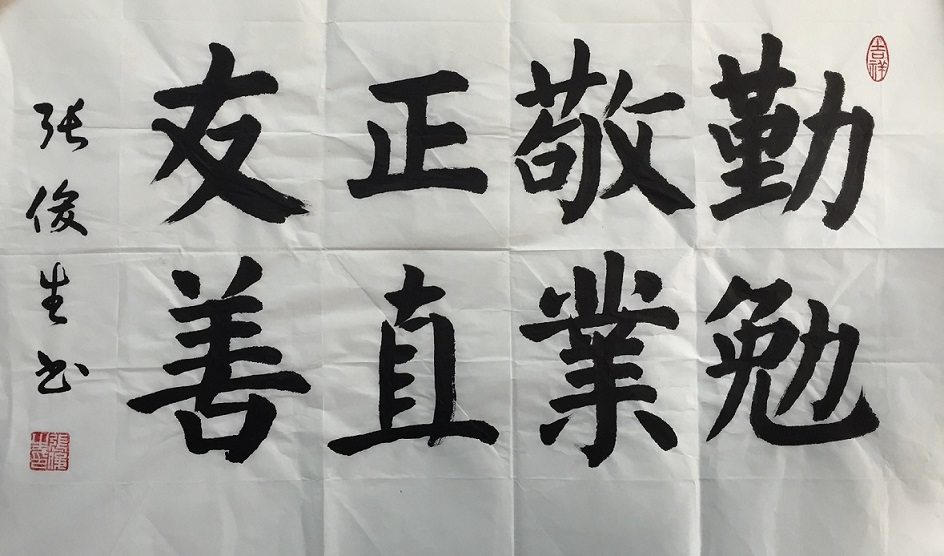 吉祥
勤勉
敬業
正直
友善
张俊生书